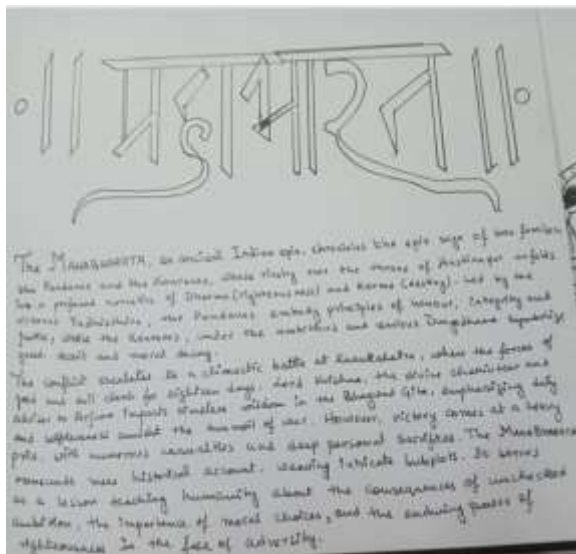 ॥ महाभारत ॥
The MAHABHARATA, an ancient Indian epic, chronicles the epic saga of two families
the Pandavas and the Kauravas, whose rivalry over the throne of Hastinapur unfolds
into a profound narrative of Dharma (righteousness) and Karma (destiny). Led by the
virtuous Yudhishthira, the Pandavas embody principles of honour, integrity and
justice, while the Kauravas, under the ambitious and envious Duryodhana symbolize
greed, deceit and moral decay.
The conflict escalates to a climactic battle at Kurukshetra, where the forces of
good and evil clash for eighteen days. Lord Krishna, the divine charioteer and
advisor to Arjuna imparts timeless wisdom in the Bhagavad Gita, emphasizing duty
and selflessness amidst the turmoil of war. However, victory comes at a heavy
price, with numerous casualties and deep personal sacrifices. The MAHABHARATA
transcends mere historical account, weaving intricate subplots. It serves
as a lesson teaching humanity about the consequences of unchecked
ambition, the importance of moral choices, and the enduring power of
righteousness in the face of adversity.